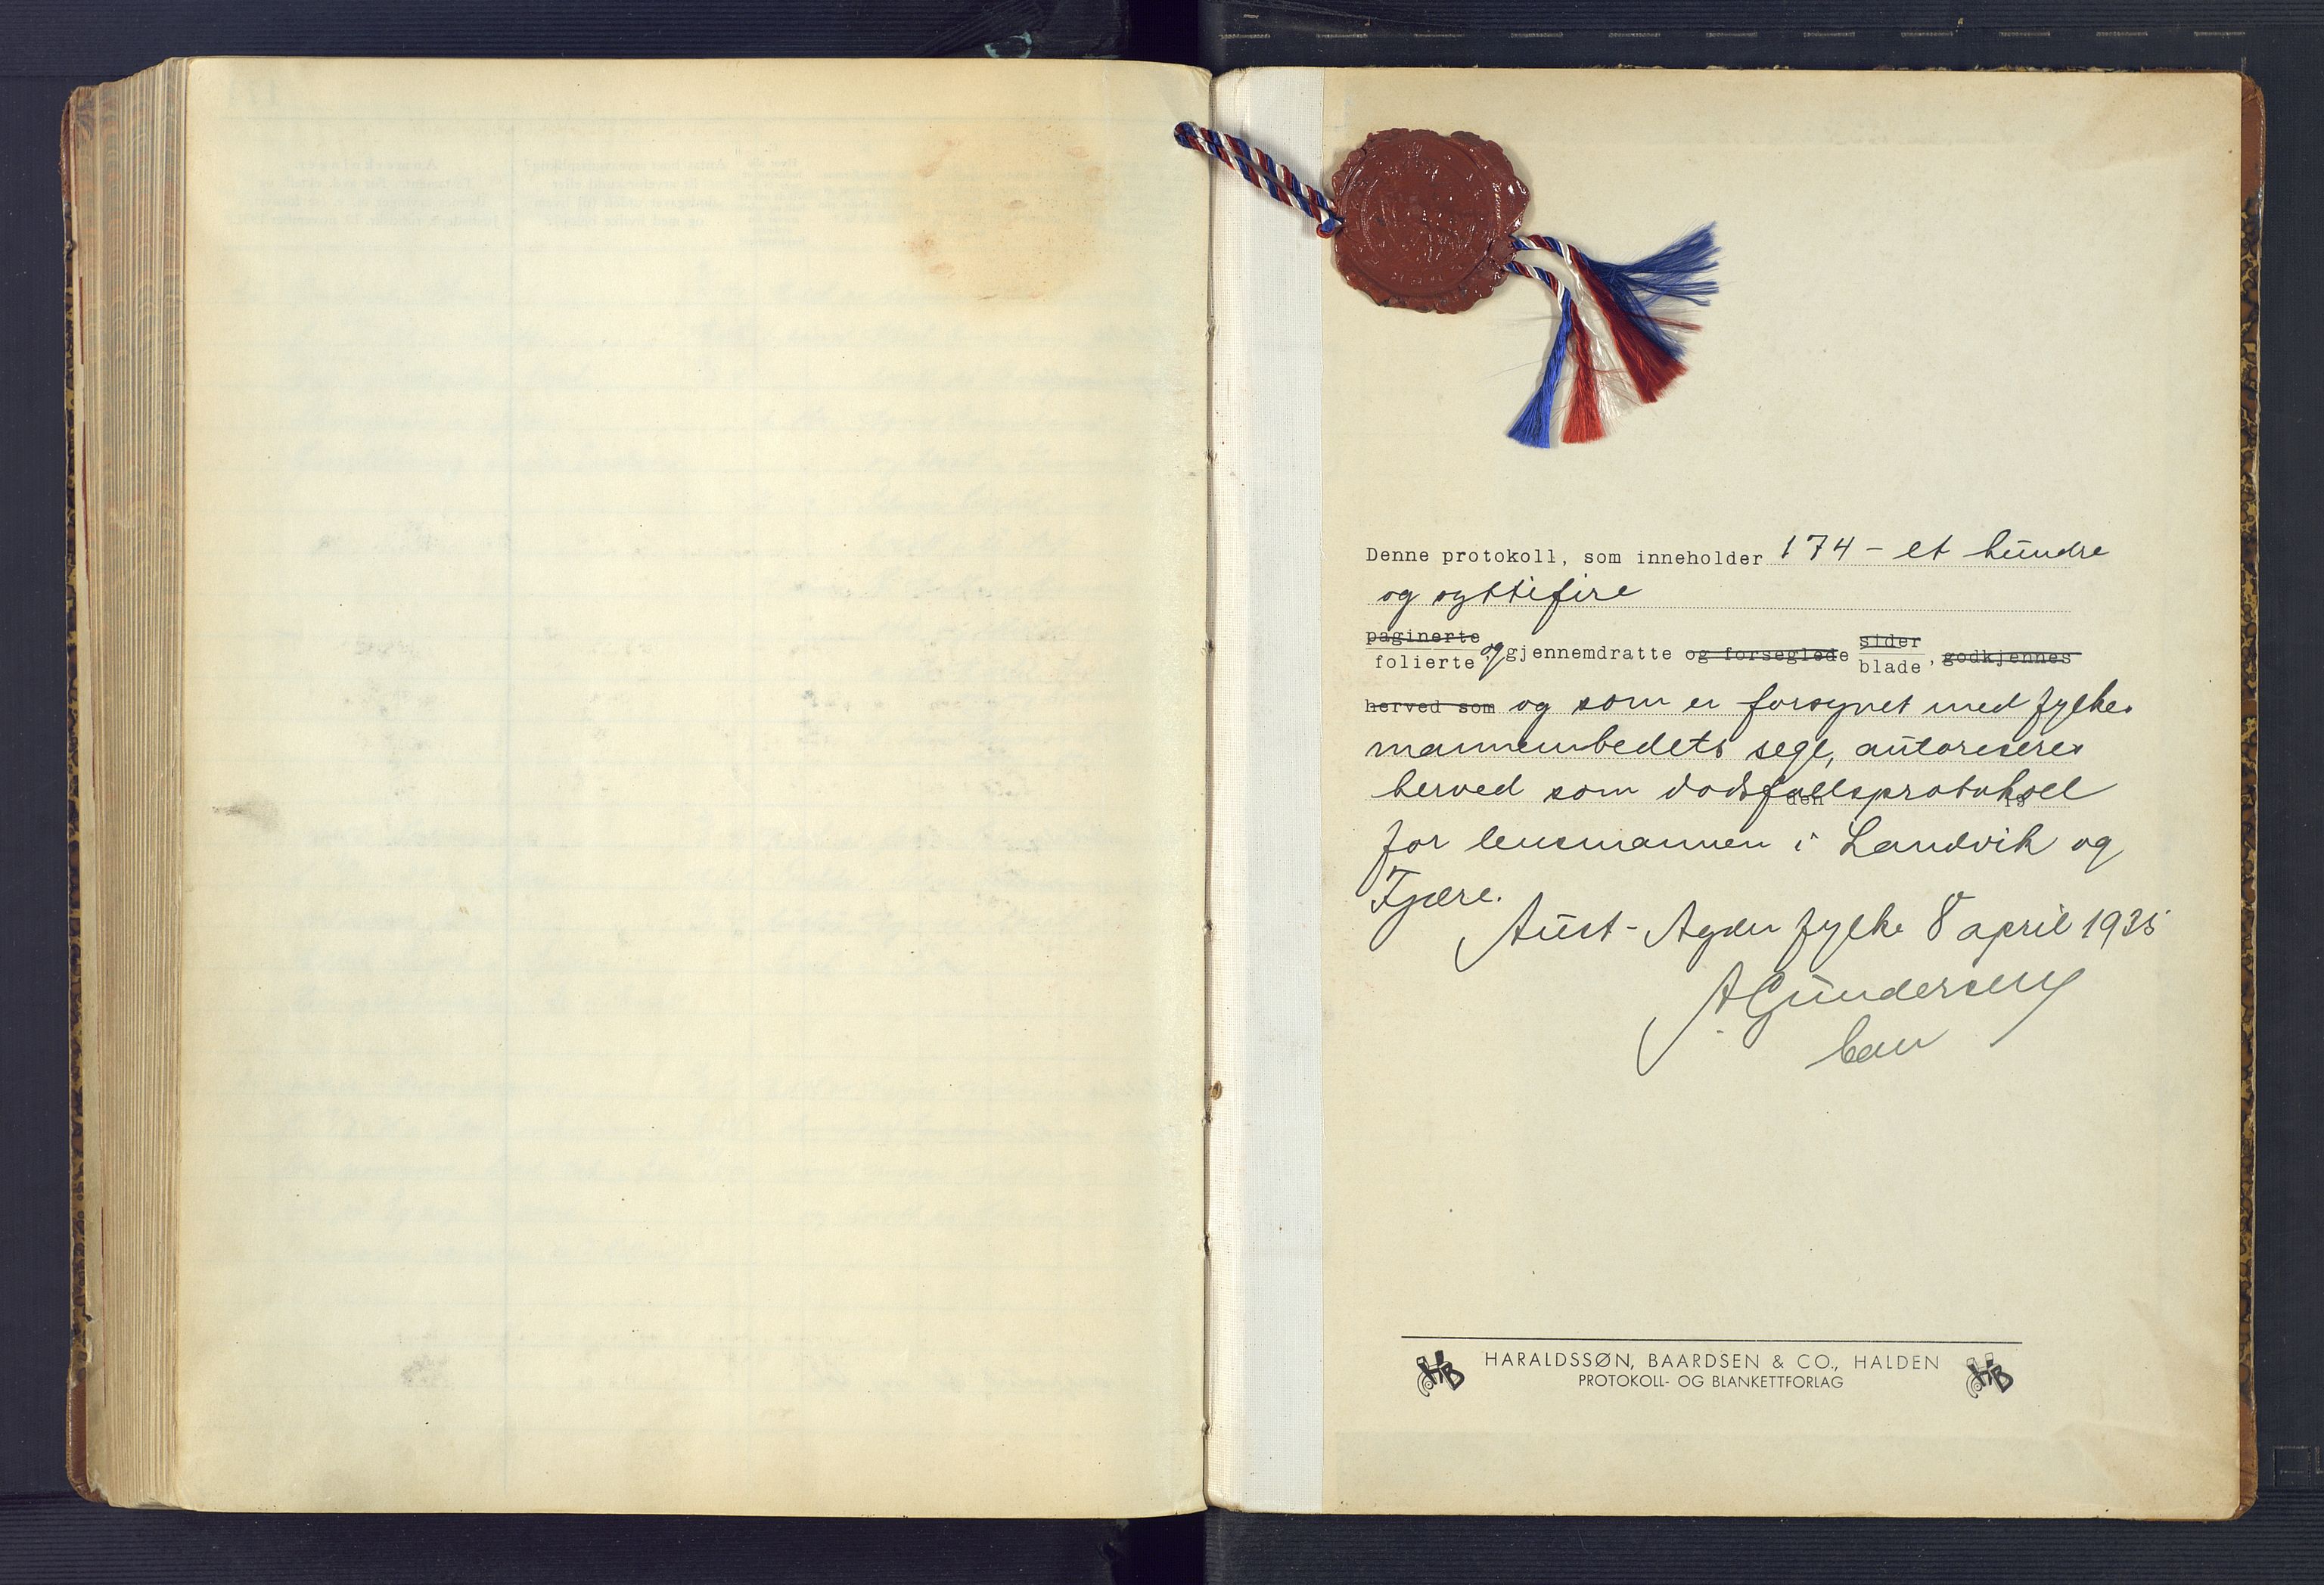 Denne protokoll, som inneholder 174 - et hundre
og syttifire
paginerte
folierte og gjennemdratte og forseglede sider
blade, godkjennes
herved som og som er forsynet med fylkes
mannembedets segl, autoriseres
herved som dødsfallsprotokoll
den 19
for lensmannen i Landvik og
Fjære.
Aust-Agder fylke 8 april 1935
A Gundersen
HARALDSSØN, BAARDSEN & CO., HALDEN
PROTOKOLL- OG BLANKETTFORLAG